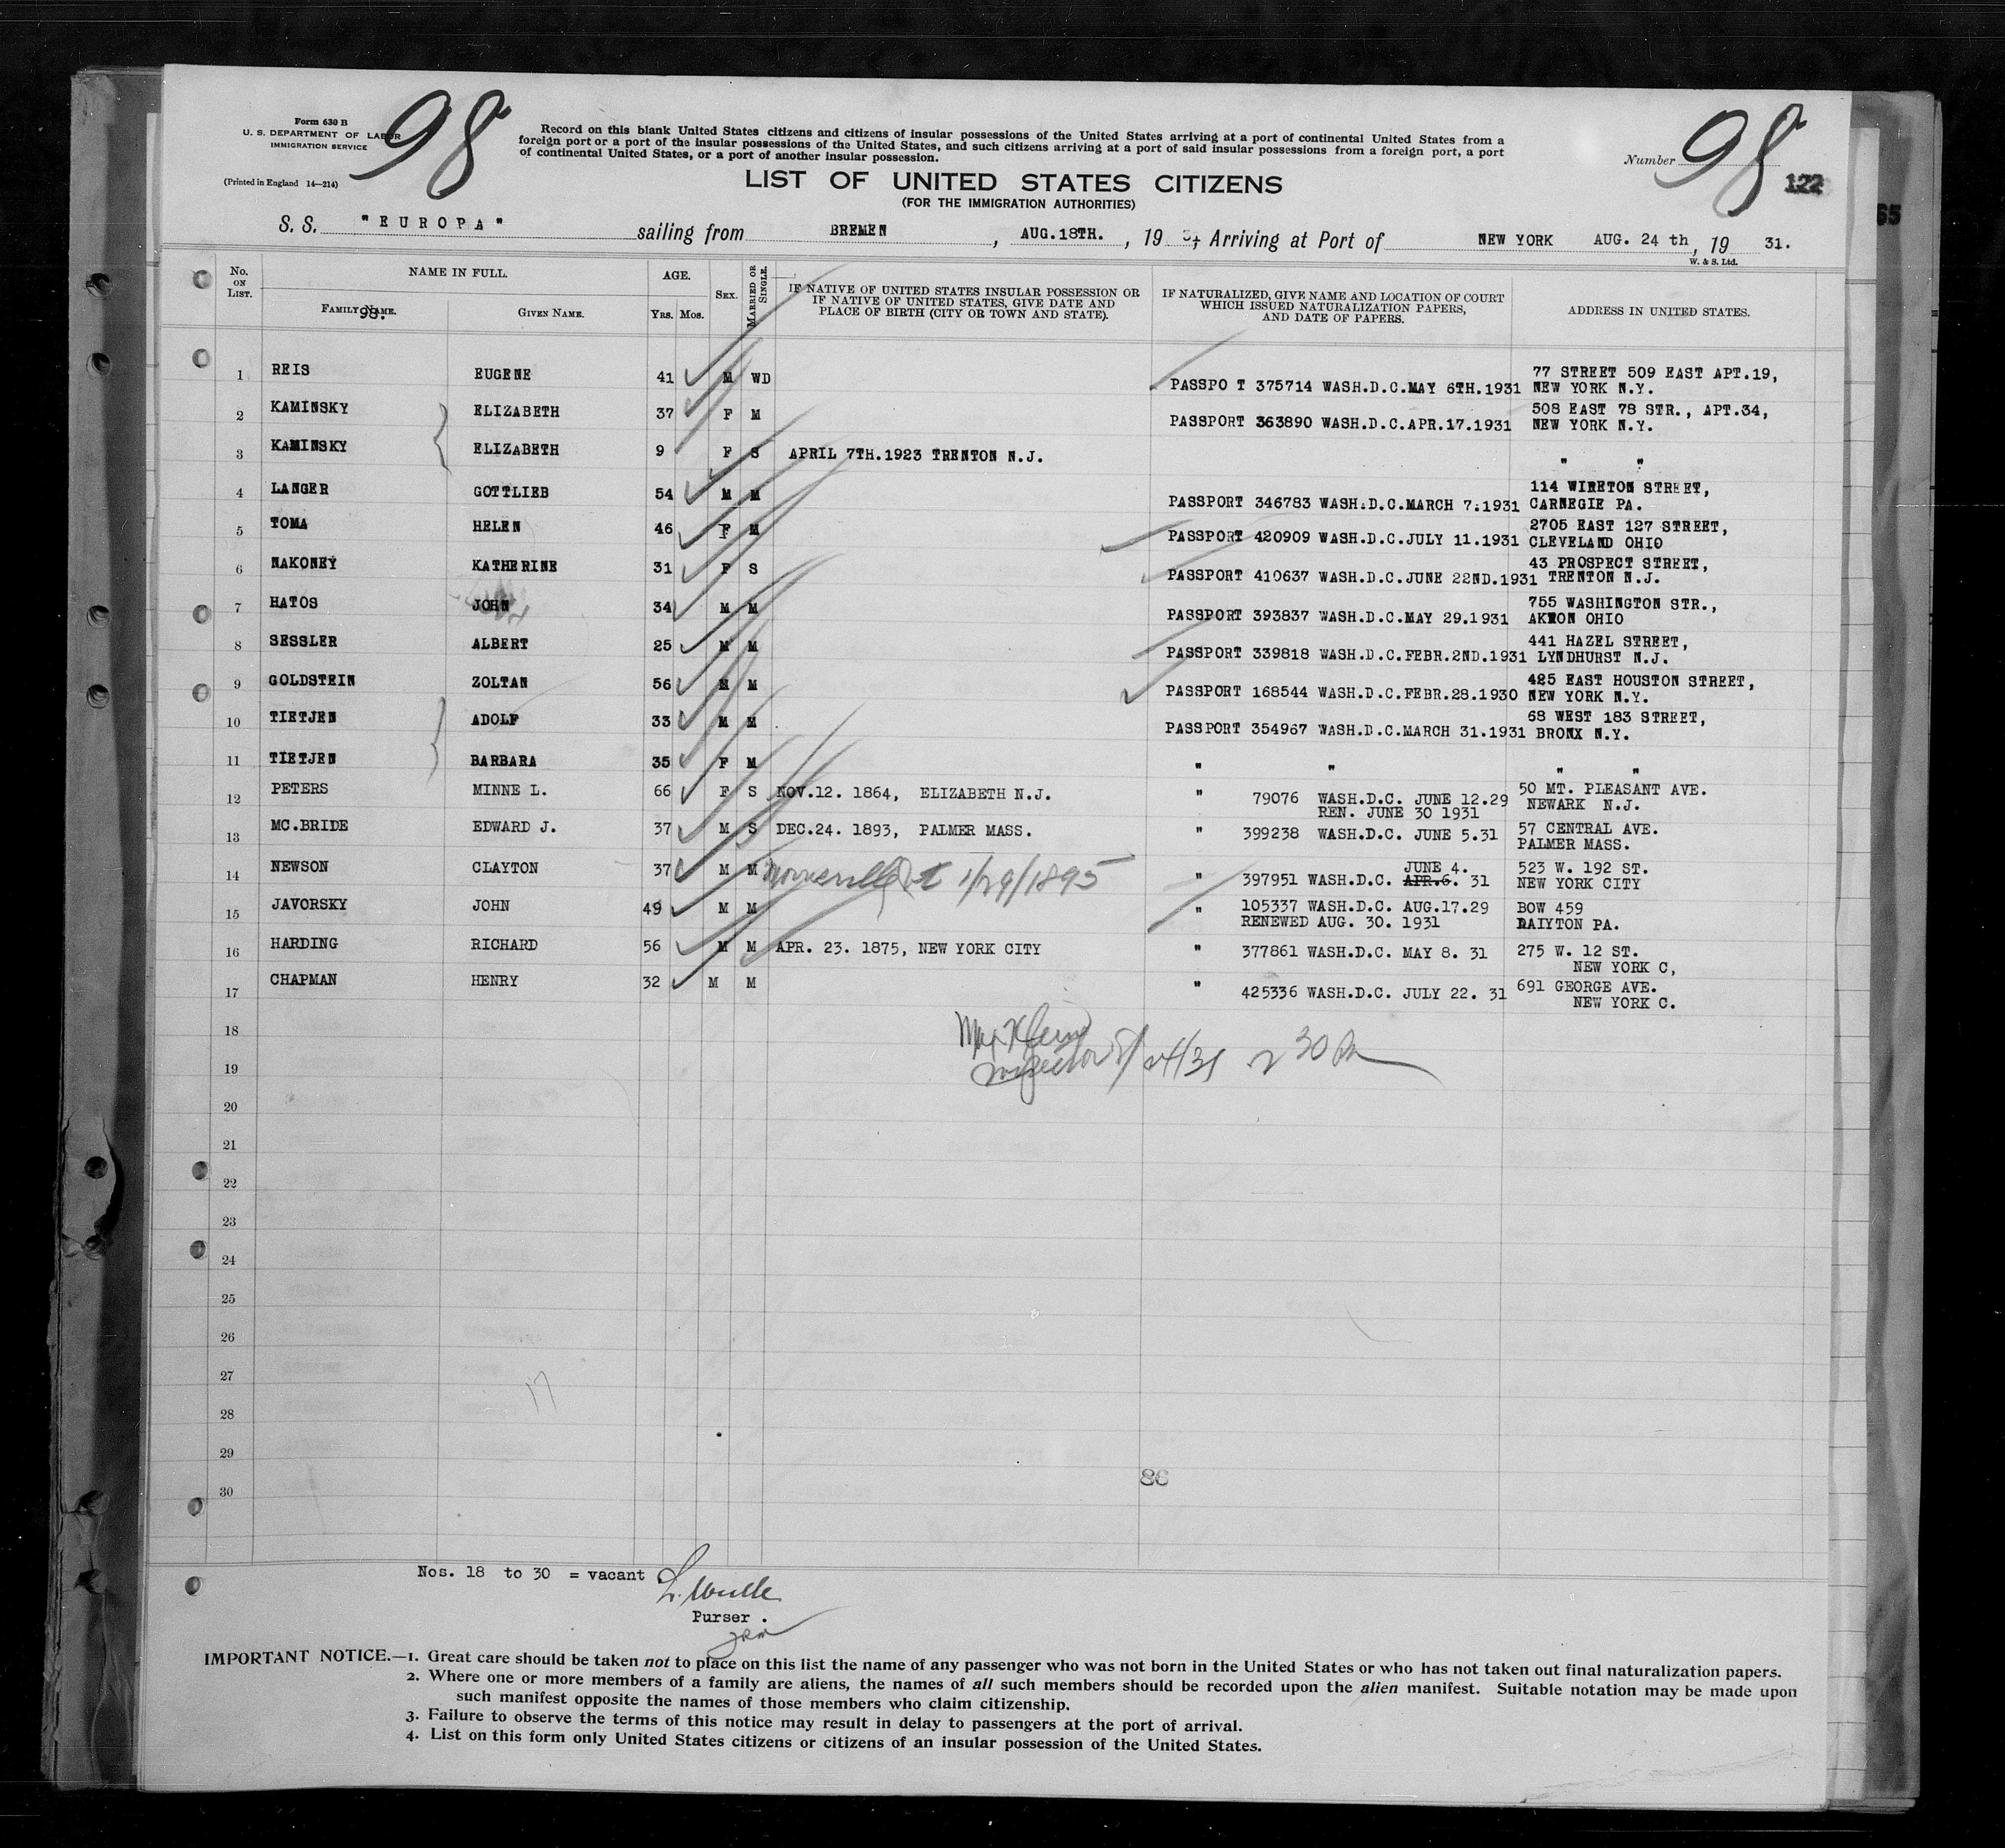 Form 630 B
U. S. DEPARTMENT OF LABOR
IMMIGRATION SERVICE
(Printed in England 14—214)
98
Record on this blank United States citizens and citizens of insular possessions of the United States arriving at a port of continental United States from a
foreign port or a port of the insular possessions of the United States, and such citizens arriving at a port of said insular possessions from a foreign port, a port
of continental United States, or a port of another insular possession.
Number 98
122
65
LIST OF UNITED STATES CITIZENS
(FOR THE IMMIGRATION AUTHORITIES)
S. S. "EUROPA" sailing from BREMEN, AUG.18TH., 19 31 Arriving at Port of NEW YORK AUG. 24 th, 19 31.
W. & S. Ltd.
No. ON LIST. NAME IN FULL. AGE. SEX. MARRIED OR SINGLE. IF NATIVE OF UNITED STATES INSULAR POSSESSION OR IF NATIVE OF UNITED STATES, GIVE DATE AND PLACE OF BIRTH (CITY OR TOWN AND STATE). IF NATURALIZED, GIVE NAME AND LOCATION OF COURT WHICH ISSUED NATURALIZATION PAPERS, AND DATE OF PAPERS. ADDRESS IN UNITED STATES.
FAMILY NAME. GIVEN NAME. Yrs. Mos.
98.
1 REIS EUGENE 41 M WD PASSPO T 375714 WASH.D.C.MAY 6TH.1931 77 STREET 509 EAST APT.19,
NEW YORK N.Y.
2 KAMINSKY ELIZABETH 37 F M PASSPORT 363890 WASH.D.C.APR.17.1931 508 EAST 78 STR., APT.34,
NEW YORK N.Y.
3 KAMINSKY ELIZABETH 9 F S APRIL 7TH.1923 TRENTON N.J. " "
4 LANGER GOTTLIEB 54 M M PASSPORT 346783 WASH.D.C.MARCH 7.1931 114 WIRETON STREET,
CARNEGIE PA.
5 TOMA HELEN 46 F M PASSPORT 420909 WASH.D.C.JULY 11.1931 2705 EAST 127 STREET,
CLEVELAND OHIO
6 NAKONEY KATHERINE 31 F S PASSPORT 410637 WASH.D.C.JUNE 22ND.1931 43 PROSPECT STREET,
TRENTON N.J.
7 HATOS JOHN 34 M M PASSPORT 393837 WASH.D.C.MAY 29.1931 755 WASHINGTON STR.,
AKRON OHIO
8 SESSLER ALBERT 25 M M PASSPORT 339818 WASH.D.C.FEBR.2ND.1931 441 HAZEL STREET,
LYNDHURST N.J.
9 GOLDSTEIN ZOLTAN 56 M M PASSPORT 168544 WASH.D.C.FEBR.28.1930 425 EAST HOUSTON STREET,
NEW YORK N.Y.
10 TIETJEN ADOLF 33 M M PASSPORT 354967 WASH.D.C.MARCH 31.1931 68 WEST 183 STREET,
BRONX N.Y.
11 TIETJEN BARBARA 35 F M " " " "
12 PETERS MINNE L. 66 F S NOV.12. 1864, ELIZABETH N.J. " 79076 WASH.D.C. JUNE 12.29 50 MT. PLEASANT AVE.
REN. JUNE 30 1931 NEWARK N.J.
13 MC.BRIDE EDWARD J. 37 M S DEC.24. 1893, PALMER MASS. " 399238 WASH.D.C. JUNE 5.31 57 CENTRAL AVE.
PALMER MASS.
14 NEWSON CLAYTON 37 M M 1/29/1895 " 397951 WASH.D.C. APR.6. JUNE 4. 31 523 W. 192 ST.
NEW YORK CITY
15 JAVORSKY JOHN 49 M M " 105337 WASH.D.C. AUG.17.29 BOW 459
RENEWED AUG. 30. 1931 DAIYTON PA.
16 HARDING RICHARD 56 M M APR. 23. 1875, NEW YORK CITY " 377861 WASH.D.C. MAY 8. 31 275 W. 12 ST.
NEW YORK C,
17 CHAPMAN HENRY 32 M M " 425336 WASH.D.C. JULY 22. 31 691 GEORGE AVE.
NEW YORK C.
18
Inspector 8/24/31 2 30
19
20
21
22
23
24
25
26
27
17
28
29
86
30
Nos. 18 to 30 = vacant
Purser .
IMPORTANT NOTICE.—1. Great care should be taken not to place on this list the name of any passenger who was not born in the United States or who has not taken out final naturalization papers.
2. Where one or more members of a family are aliens, the names of all such members should be recorded upon the alien manifest. Suitable notation may be made upon
such manifest opposite the names of those members who claim citizenship.
3. Failure to observe the terms of this notice may result in delay to passengers at the port of arrival.
4. List on this form only United States citizens or citizens of an insular possession of the United States.